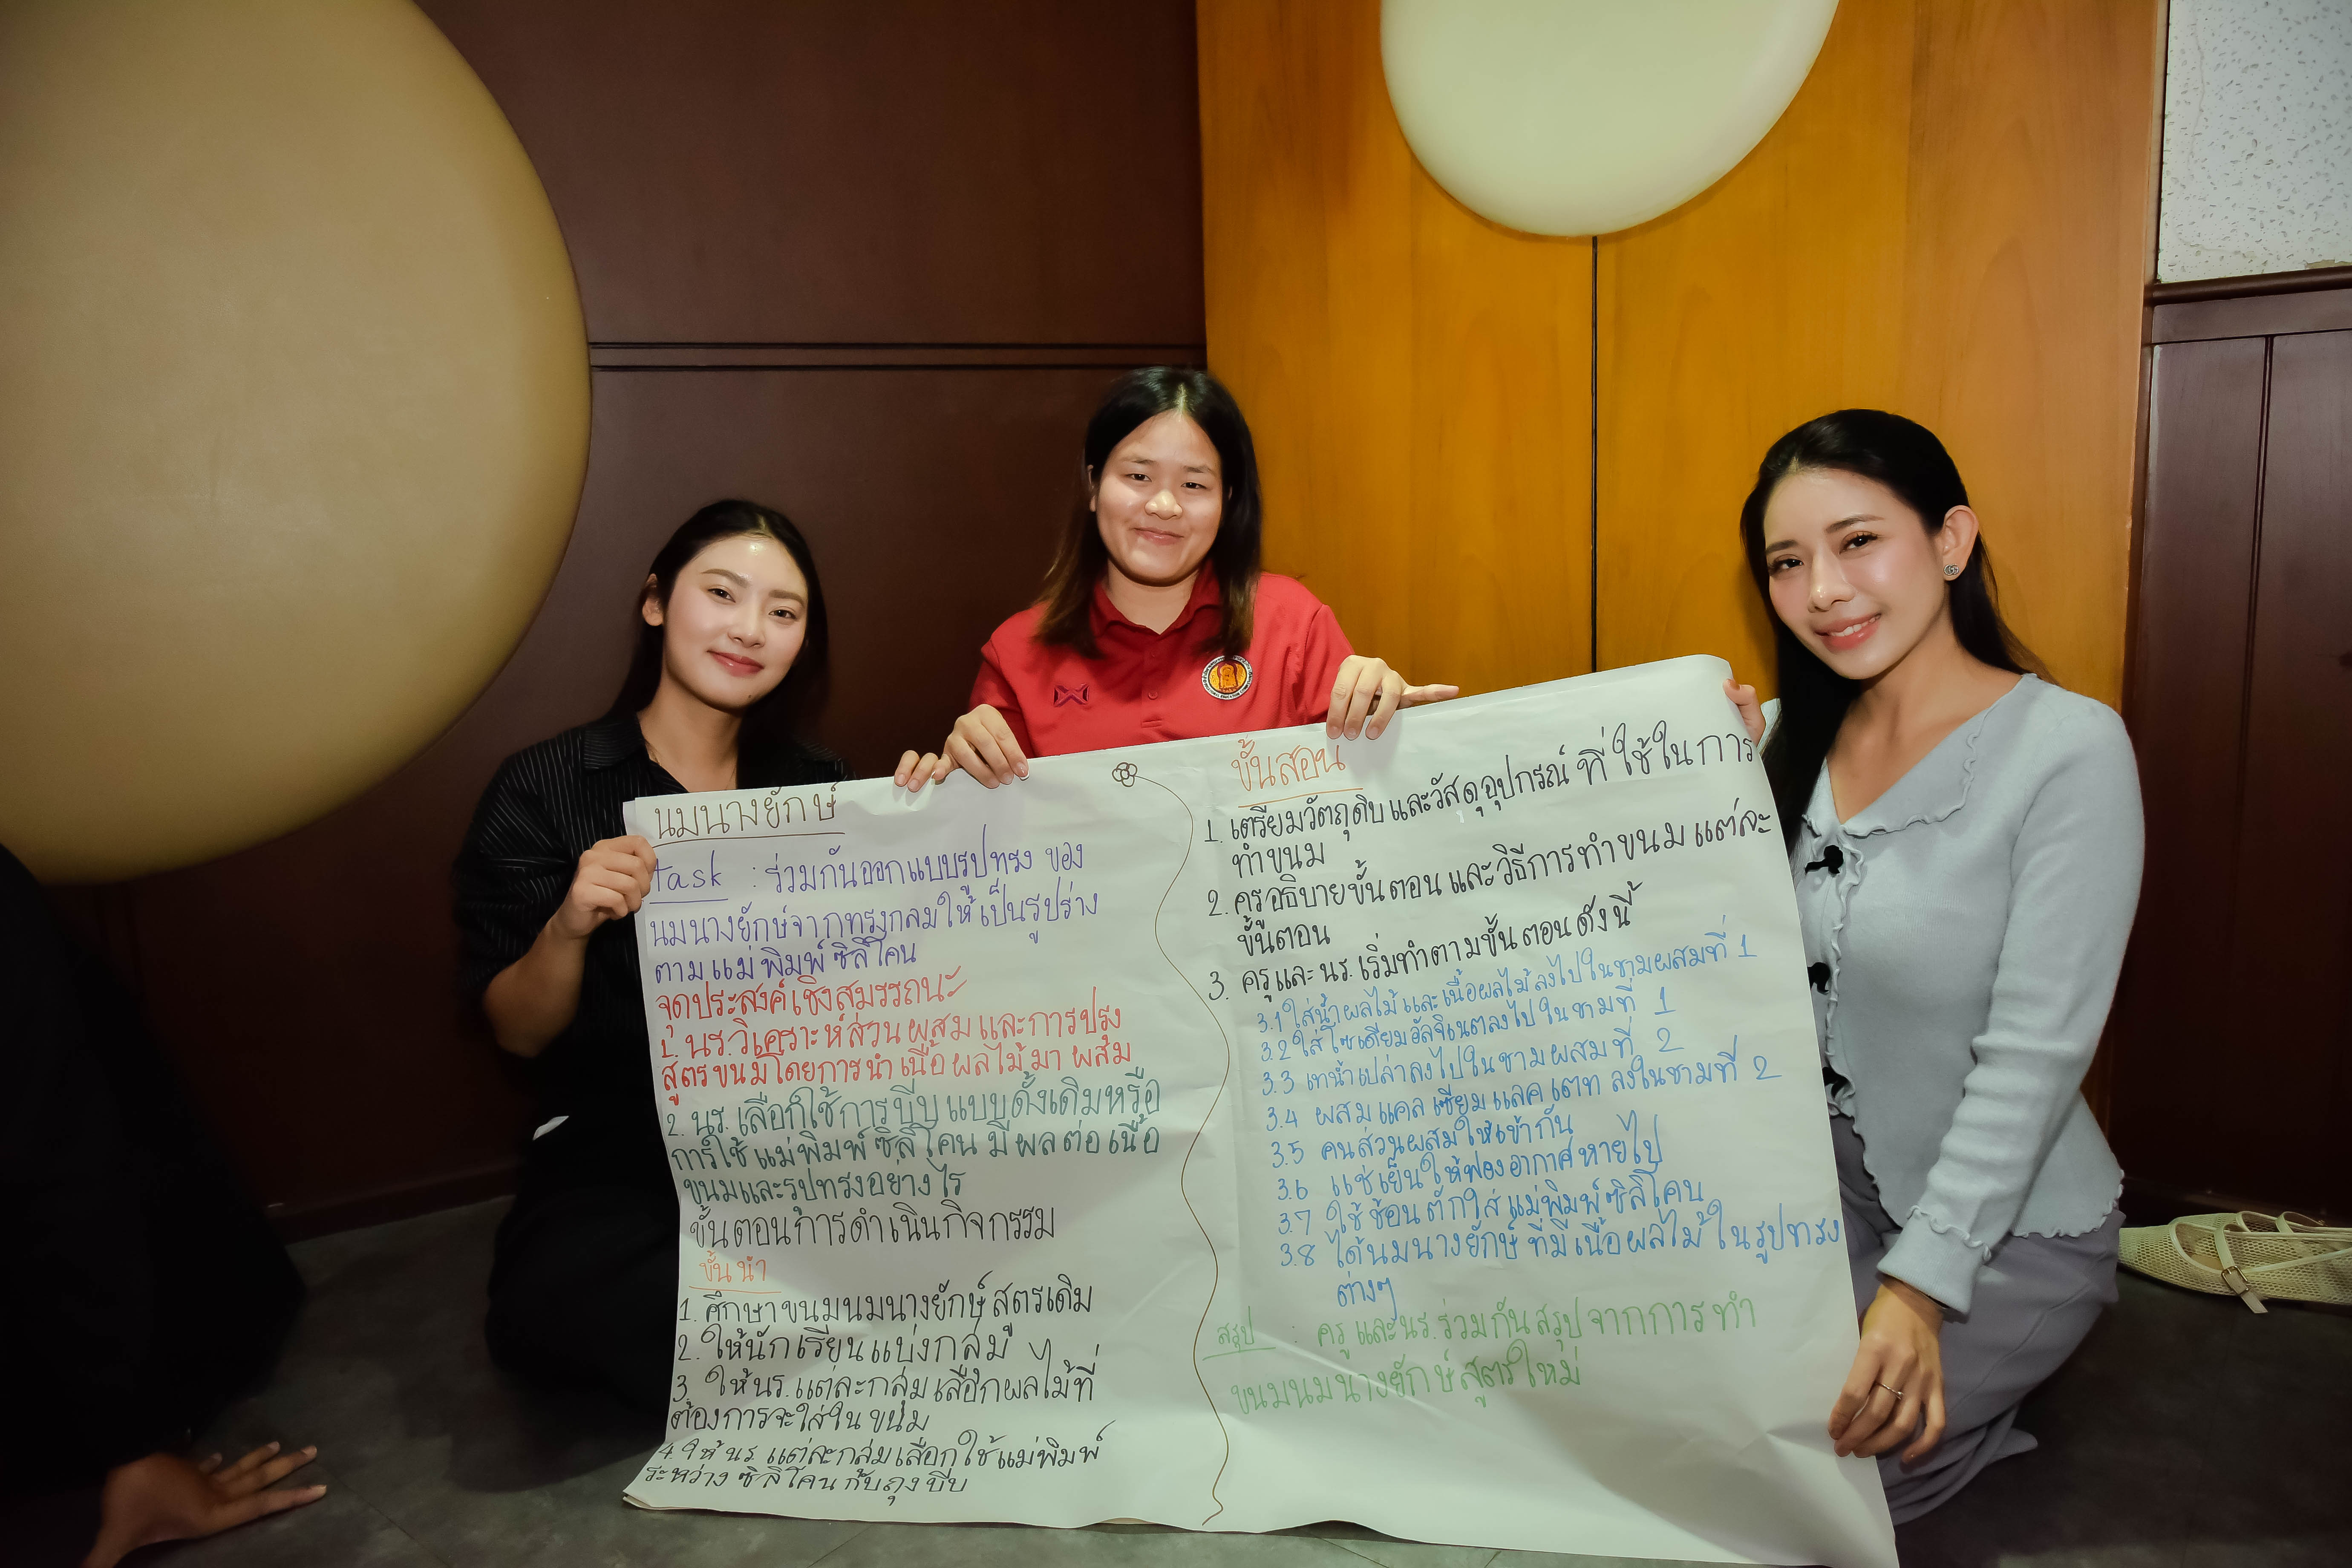 นมนางยักษ์
task : ร่วมกันออกแบบรูปทรง ของ
นมนางยักษ์จากทรงกลมให้เป็นรูปร่าง
ตามแม่พิมพ์ซิลิโคน
จุดประสงค์เชิงสมรรถนะ
1. นร.วิเคราะห์ส่วนผสมและการปรุง
สูตรขนมโดยการนำเนื้อผลไม้มาผสม
2. นร.เลือกใช้การบีบแบบดั้งเดิมหรือ
การใช้แม่พิมพ์ซิลิโคน มีผลต่อเนื้อ
ขนมและรูปทรงอย่างไร
ขั้นตอนการดำเนินกิจกรรม
ขั้นนำ
1. ศึกษาขนมนมนางยักษ์สูตรเดิม
2. ให้นักเรียนแบ่งกลุ่ม
3. ให้นร.แต่ละกลุ่มเลือกผลไม้ที่
ต้องการจะใส่ในขนม
4. ให้นร.แต่ละกลุ่มเลือกใช้แม่พิมพ์
ระหว่าง ซิลิโคน กับถุงบีบ
ขั้นสอน
1. เตรียมวัตถุดิบและวัสดุอุปกรณ์ที่ใช้ในการ
ทำขนม
2. ครูอธิบายขั้นตอน และวิธีการทำขนมแต่ละ
ขั้นตอน
3. ครูและนร.เริ่มทำตามขั้นตอนดังนี้
3.1 ใส่น้ำผลไม้และเนื้อผลไม้ลงไปในชามผสมที่ 1
3.2 ใส่โซเดียมอัลจิเนตลงไปในชามที่ 1
3.3 เทน้ำเปล่าลงไปในชามผสมที่ 2
3.4 ผสมแคลเซียมแลคเตท ลงในชามที่ 2
3.5 คนส่วนผสมให้เข้ากัน
3.6 แช่เย็นให้ฟองอากาศหายไป
3.7 ใช้ช้อนตักใส่แม่พิมพ์ซิลิโคน
3.8 ได้นมนางยักษ์ที่มีเนื้อผลไม้ในรูปทรง
ต่างๆ
สรุป : ครูและนร.ร่วมกันสรุปจากการทำ
ขนมนมนางยักษ์สูตรใหม่